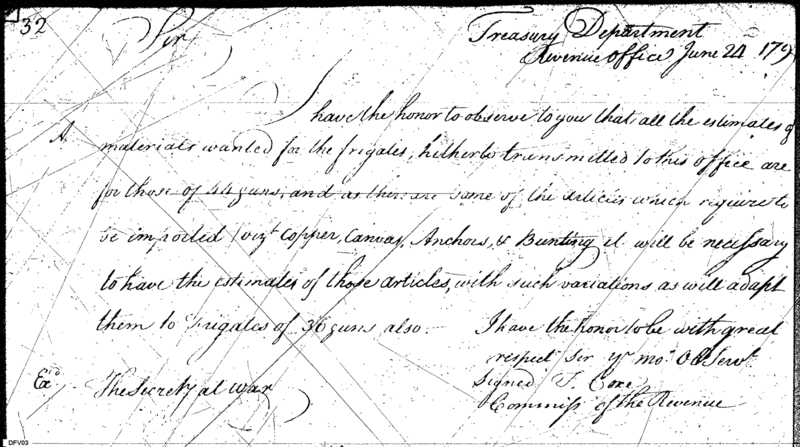 32
Treasury Department
Sir
Revenue Office June 24 179
I have the honor to observe to you that all the estimates of
A.
materials wanted for the frigates, hitherto transmitted to this office are
for those of 44 guns, and as there are some of the articles which require to
be imported / vizt Copper, Canvas, Anchors, & Bunting it will be necessary
to have the estimates of those articles, with such variations as will adapt
them to Frigates of 36 guns also.
I have the honor to be with great
respect Sir yr. mo. Ob Servt.
Exd
The Secrety at War
Signed T. Coxe
Commissr of the Revenue
DFV03